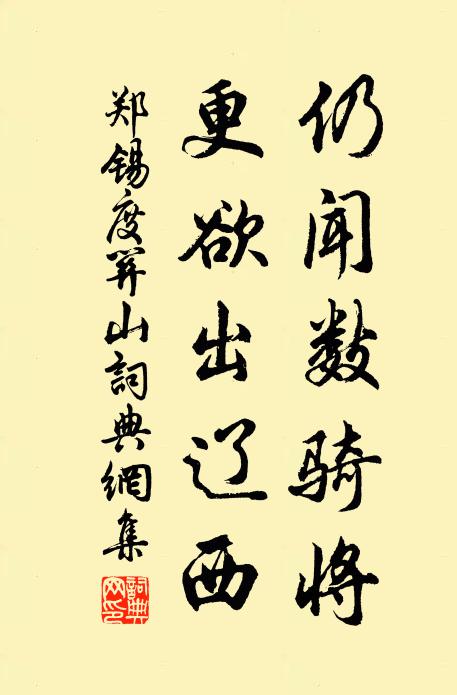 仍闻数骑将
更欲出辽西
郑锡度关山詞典網集
詞典網印